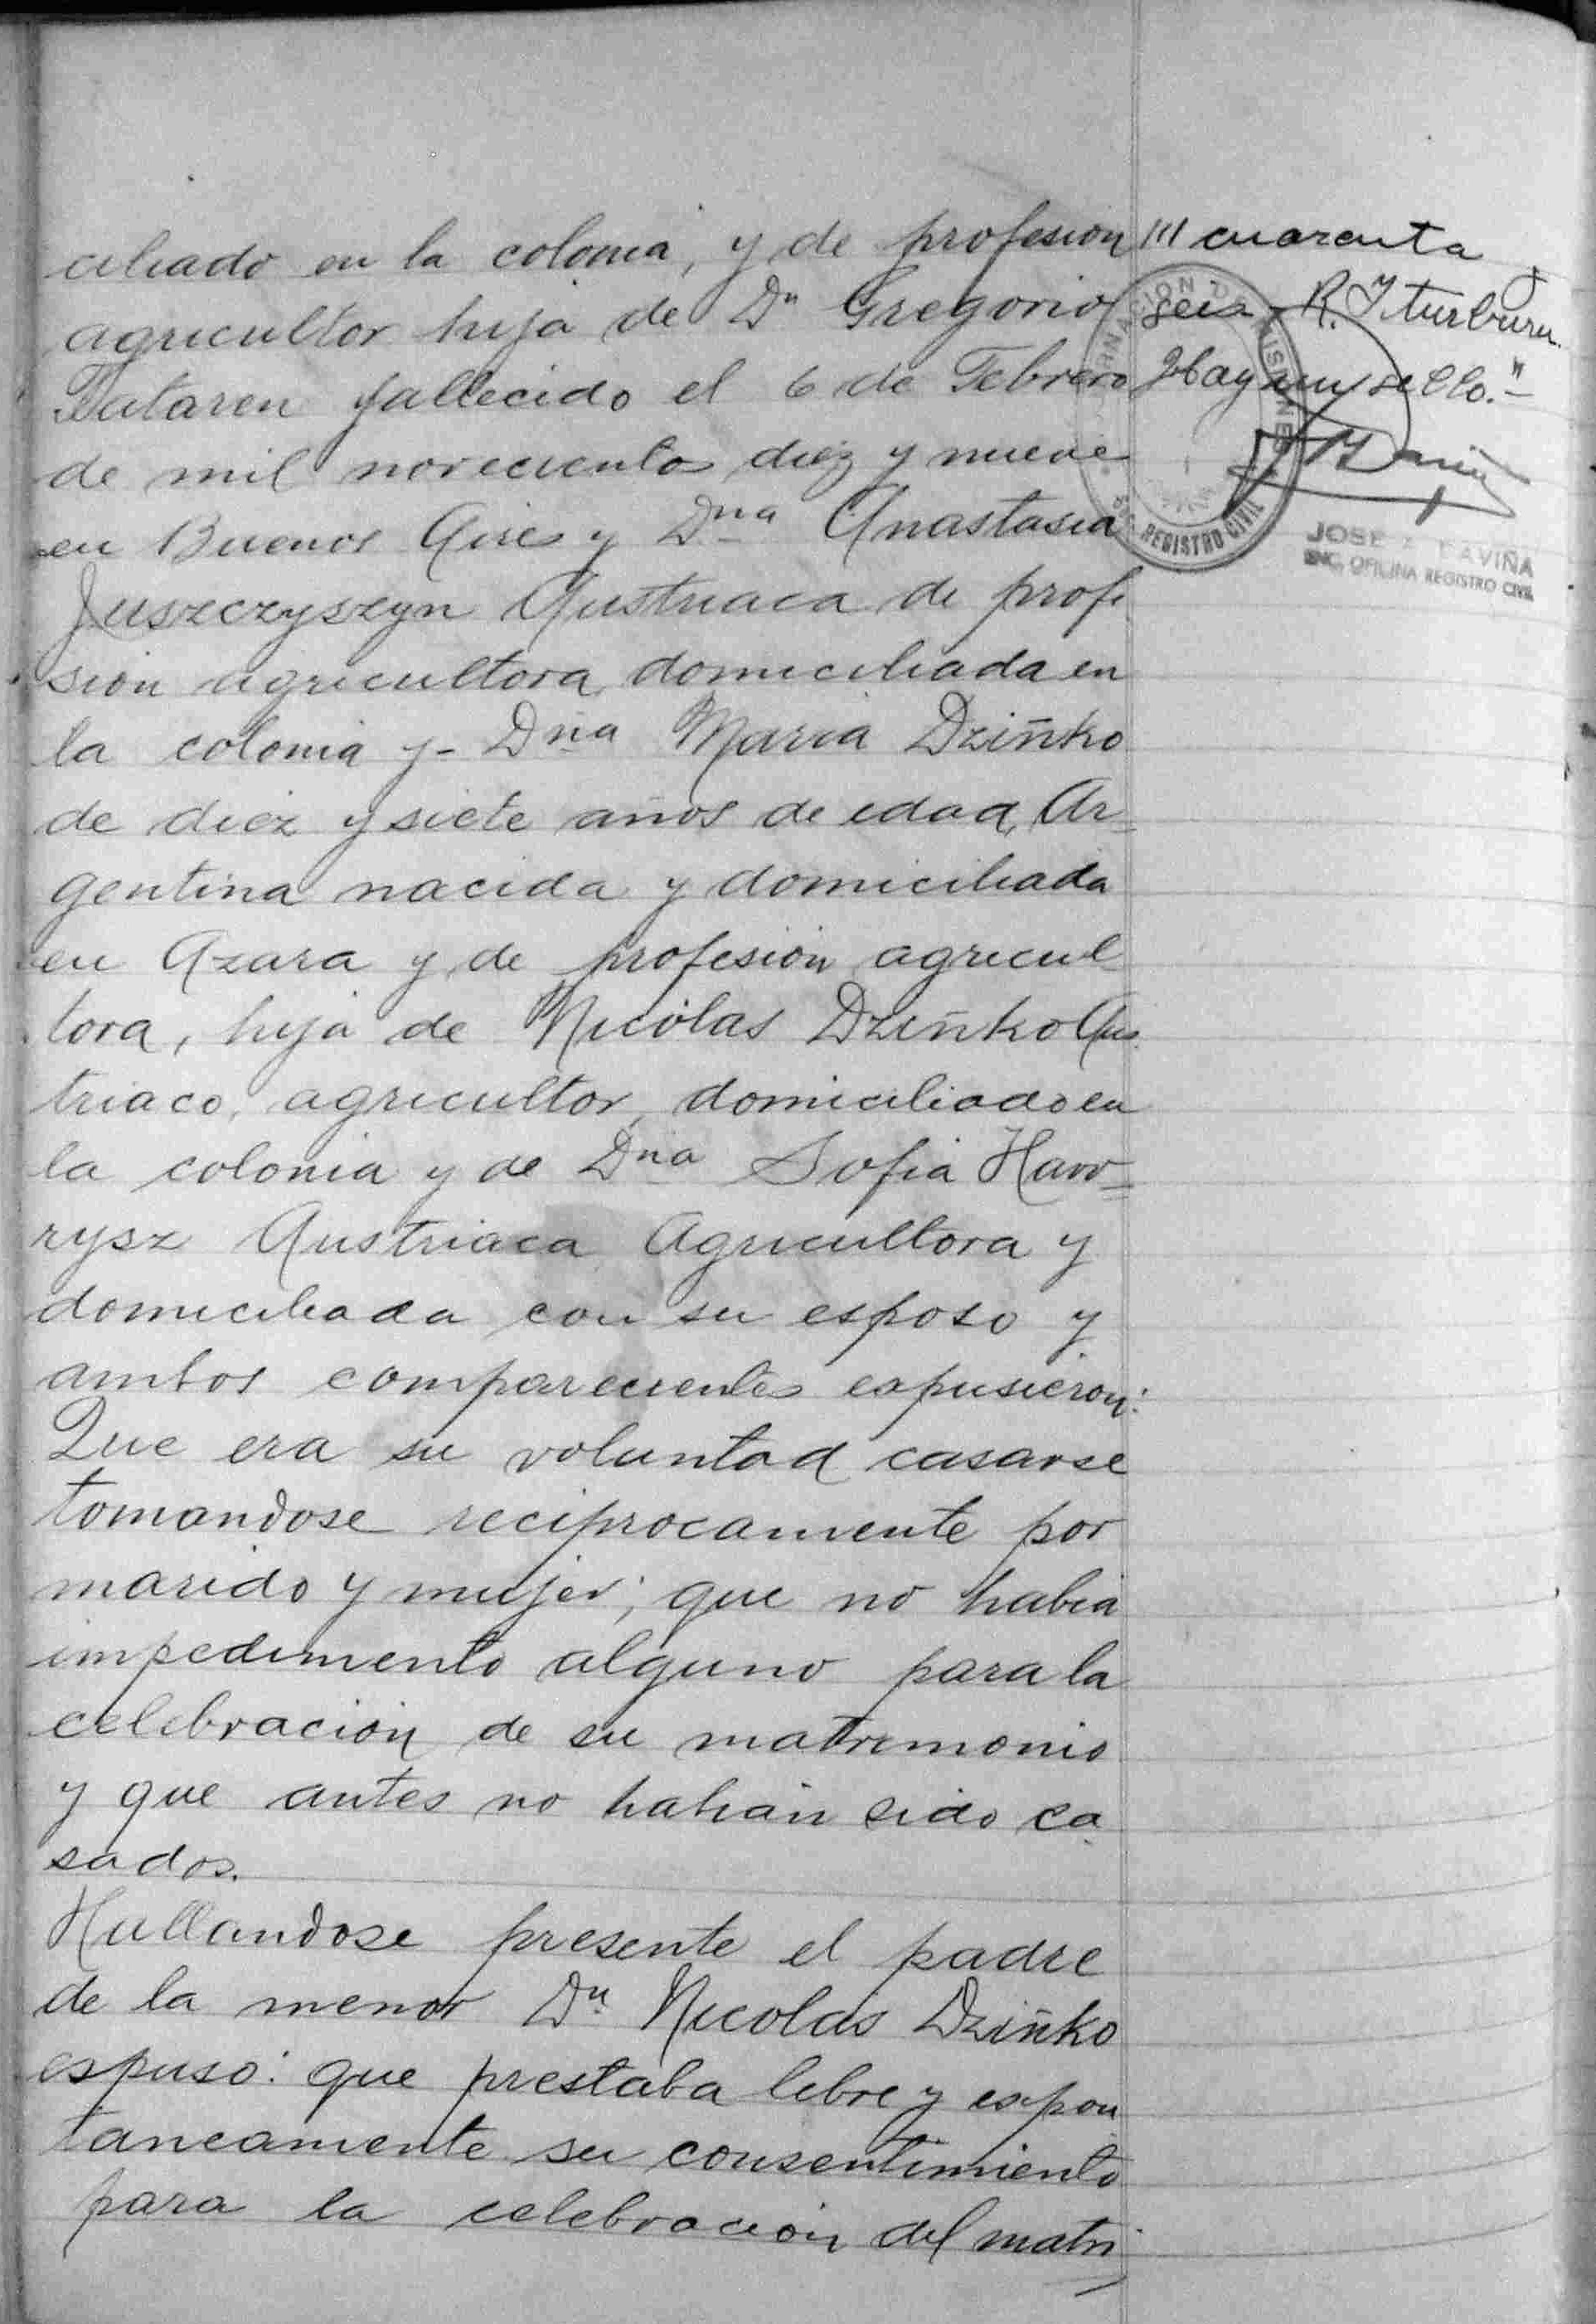 ciliado en la colonia, y de profesion
agricultor hija de Dn Gregorio
fallecido el 6 de Febrero
de mil novecientos diez y nueve
en Buenos Aires y Dña Anastasia
Juszczyszyn Austriaca de profe
sion agricultora, domiciliada en
la colonia y - Dña Maria Dziñko
de diez y siete años de edad, Ar=
gentina nacida y domiciliada
en Azara y de profesion agricul
tora, hija de Nicolas Dziñko Aus
triaco, agricultor, domiciliado en
la colonia y de Dña Sofia Haw=
rysz Austriaca Agricultora y
domiciliada con su esposo y
ambos comparecientes expusieron:
Que era su voluntad casarse
tomandose reciprocamente por
marido y mujer; que no habia
impedimento alguno para la
celebracion de su matrimonio
y que antes no habian sido ca
sados.
Hallandose presente el padre
de la menor Dn Nicolas Dziñko
espuso: que prestaba libre y espon
taneamente su consentimiento
para la celebracion del matri
/// cuarenta
seis R. Iturburu.
Hay un sello."-
REGISTRO CIVIL
JOSE LAVIÑA
ENC. OFICINA REGISTRO CIVIL